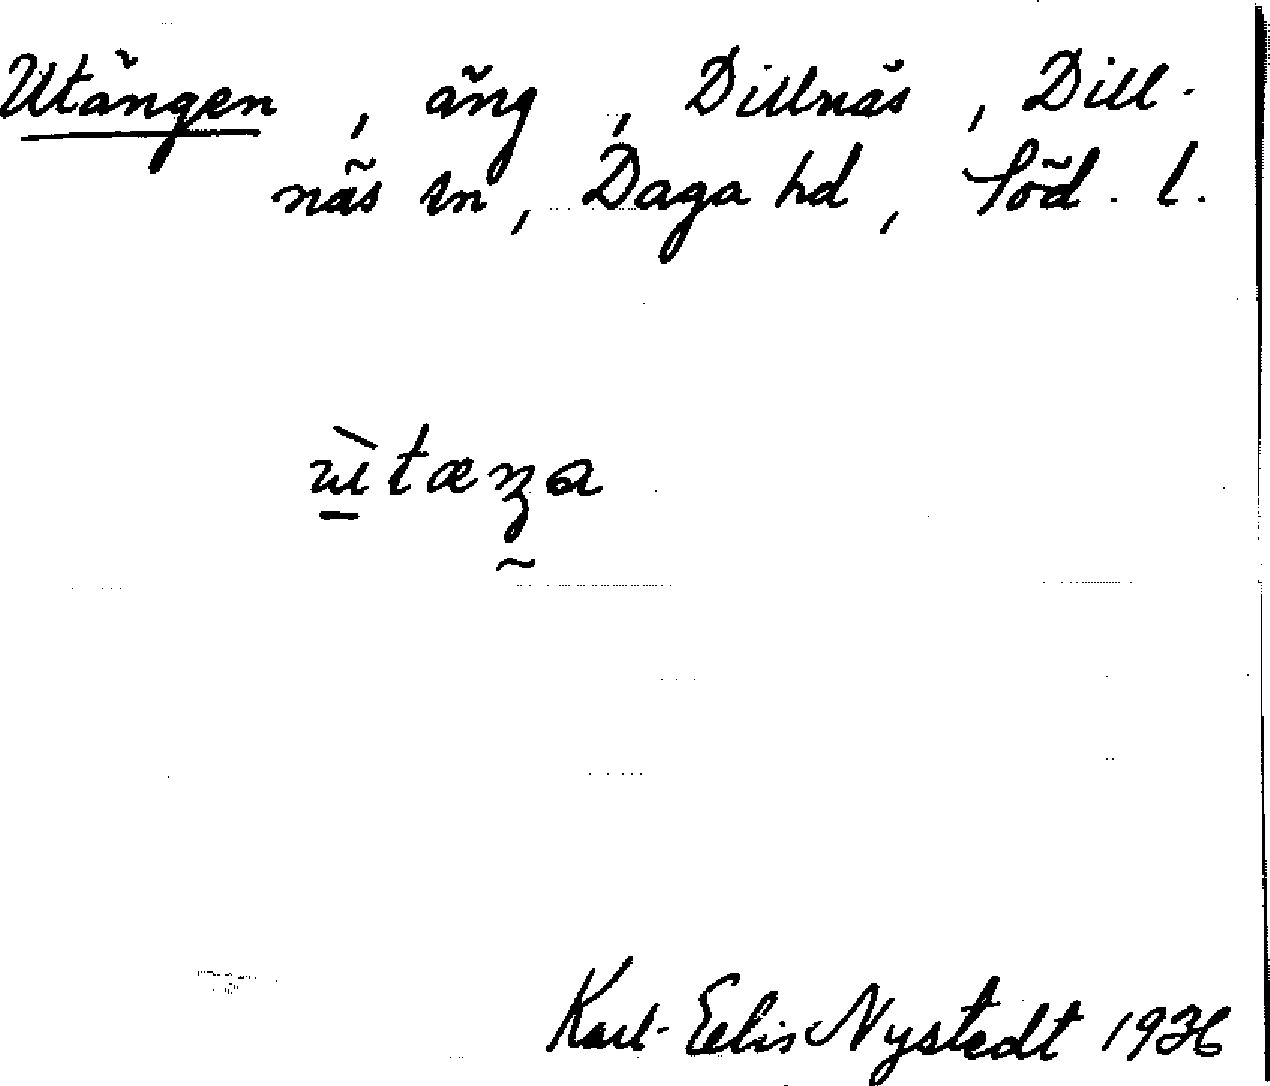 Utängen, äng, Dillnäs, Dill-
näs sn, Daga hd, Söd. l.
ùtæŋa
Karl-Eelis Nystedt 1936